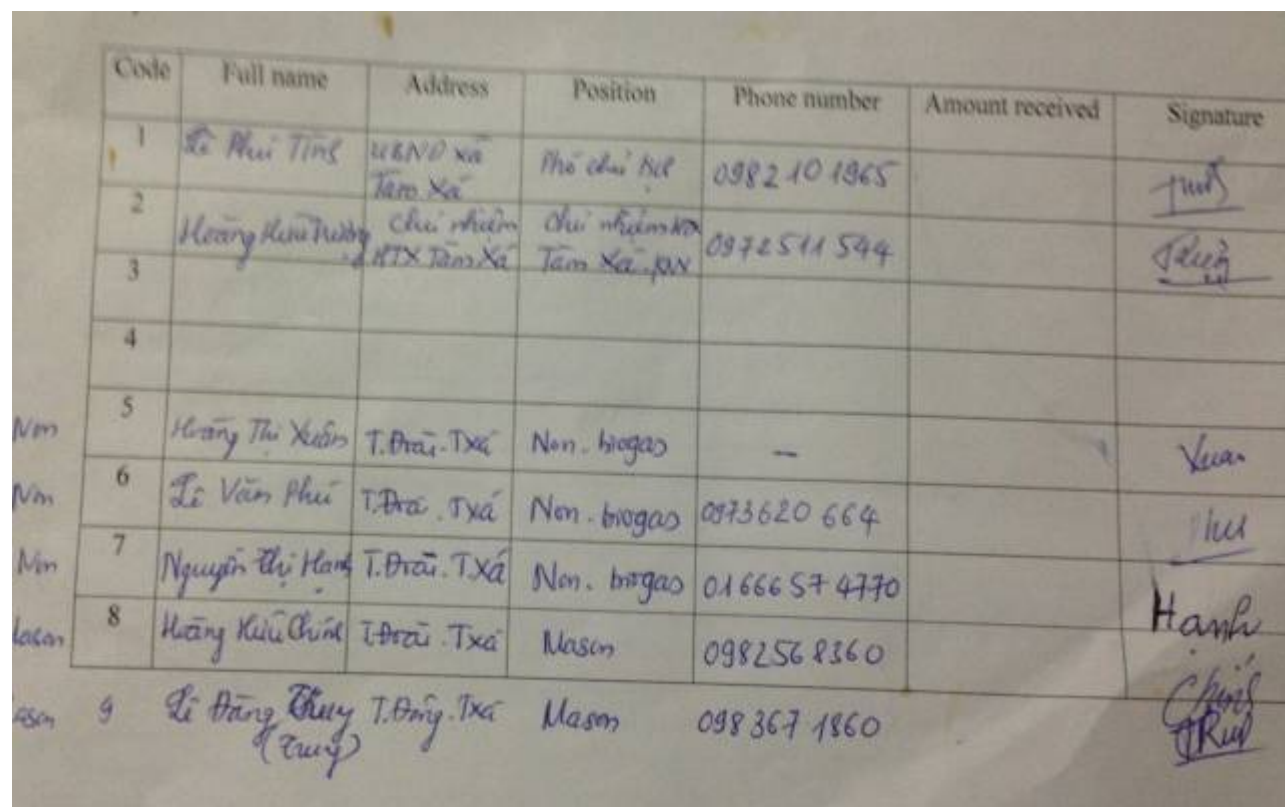 Code Full name Address Position Phone number Amount received Signature
1 Lê Phú Tĩnh UBND xã Phó chủ tịch 0982 10 1965
Tàm Xá
2 Hoàng Hữu Chủ nhiệm Chủ nhiệm 0972511 544
HTX Tàm Xá Tàm Xá
3
4
Non 5 Hoàng Thị Xuân T.Đoài.Txá Non. biogas - Xuan
Non 6 Lê Văn Phú T.Đoài.Txá Non. biogas 0973620 664
Non 7 Nguyễn Thị Hạnh T.Đoài.Txá Non. biogas 01666 57 4770 Hạnh
Mason 8 Hoàng Hữu Chính T.Đoài.Txá Mason 0982568360 Chính
9 Lê Đăng Thuy T.Đông.Txá Mason 098 367 1860
(Truy)